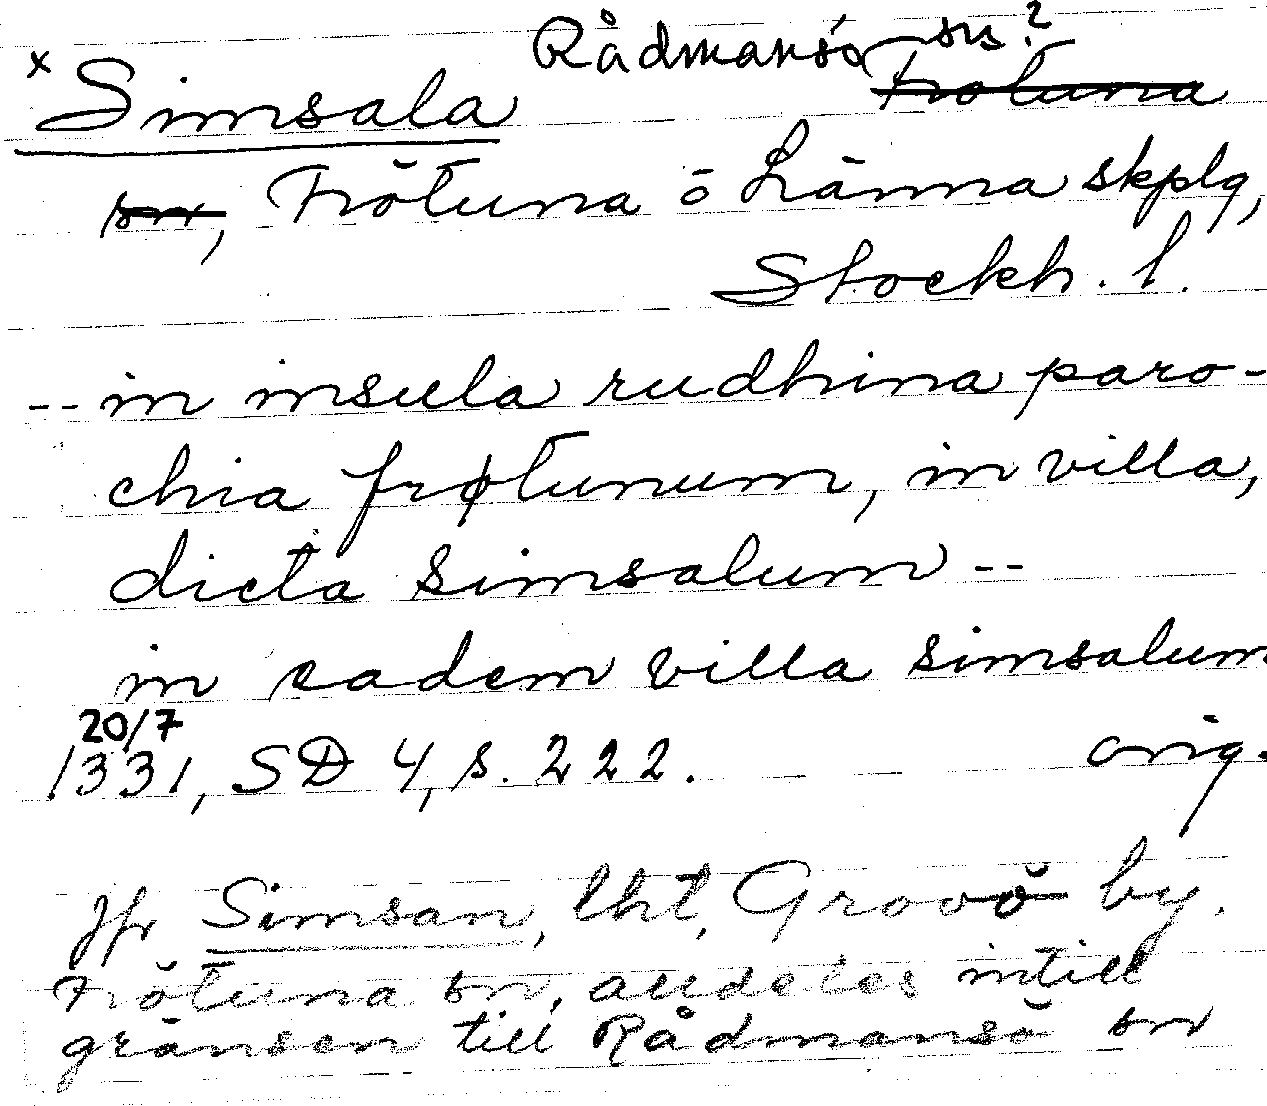 Rådmansö sn?
x Simsala ~~Frötuna~~
~~sn~~, Frötuna o Länna skplg,
Stockh. l.
-- in insula rudhina paro-
chia frøtunum, in villa,
dicta simsalum --
in eadem villa simsalum
20/7
1331, SD 4, s. 222. orig.
Jfr Simsan, lht, Grovö by.
Frötuna sn, alldeles intill
gränsen till Rådmansö sn